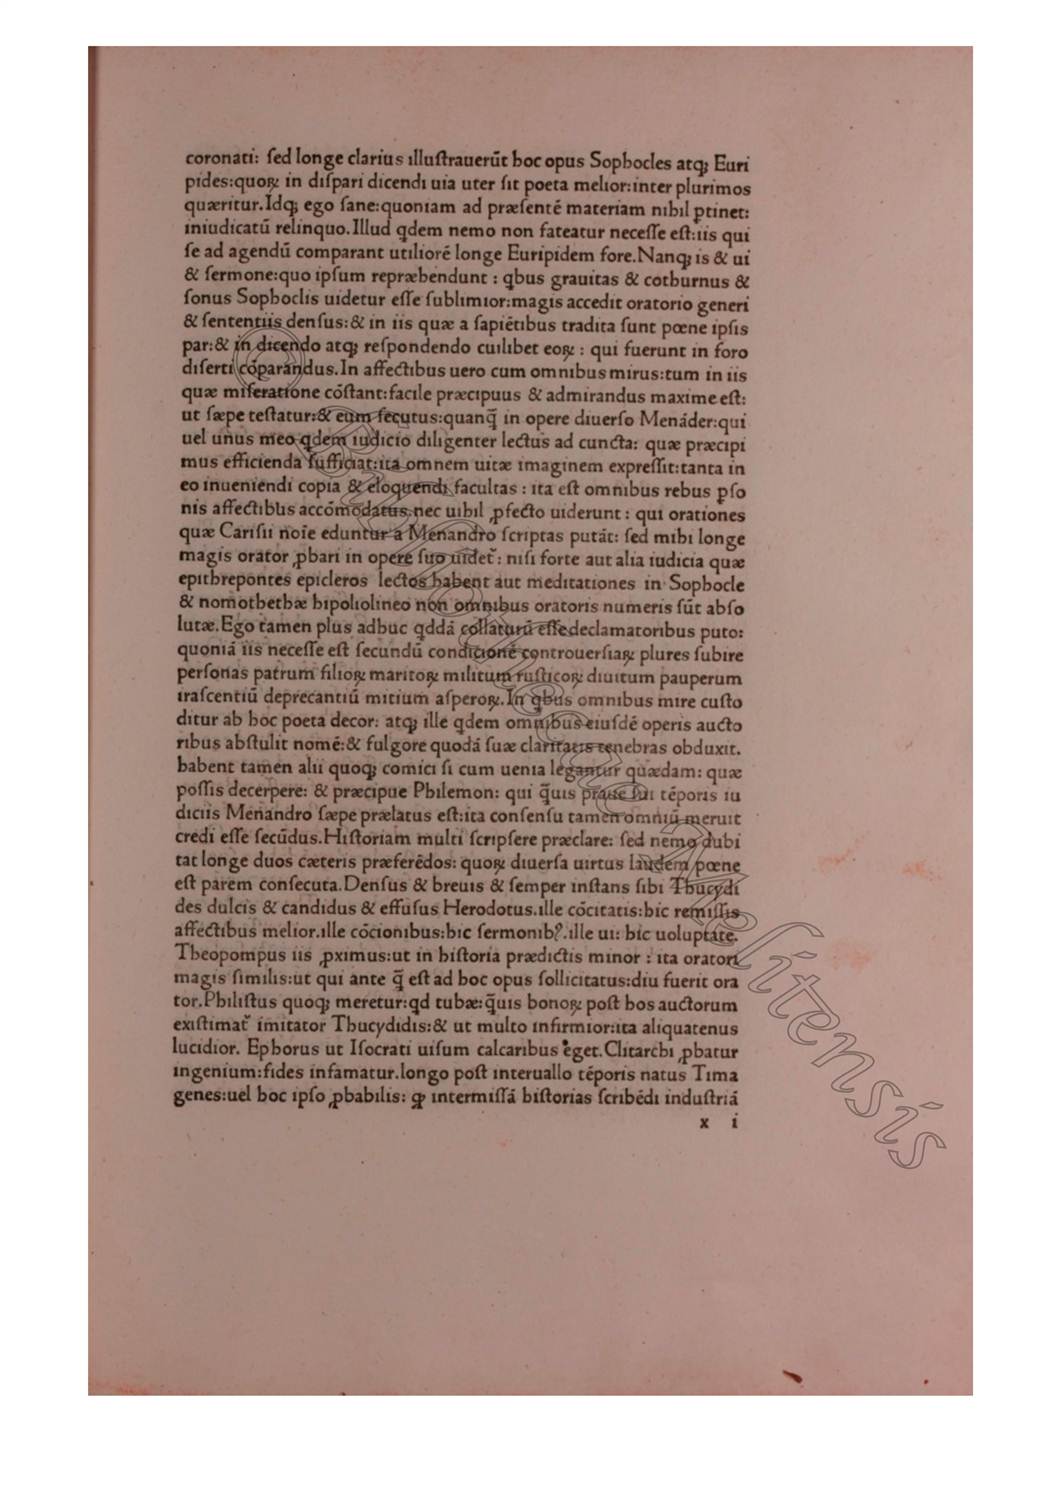 coronati: ſed longe clarius illuſtrauerūt hoc opus Sophocles atqꝫ Euri
pides:quoꝝ in diſpari dicendi uia uter ſit poeta melior:inter plurimos
quæritur.Idqꝫ ego ſane:quoniam ad præſentē materiam nihil ꝑtinet:
iniudicatū relinquo.Illud qdem nemo non fateatur neceſſe eſt:iis qui
ſe ad agendū comparant utiliorē longe Euripidem fore.Nanqꝫ is & ui
& ſermone:quo ipſum repræhendunt : qbus grauitas & cothurnus &
ſonus Sophoclis uidetur eſſe ſublimior:magis accedit oratorio generi
& ſententiis denſus:& in iis quæ a ſapiētibus tradita ſunt pœne ipſis
par:& in dicendo atqꝫ reſpondendo cuilibet eoꝝ : qui fuerunt in foro
diſerti cōparandus.In affectibus uero cum omnibus mirus:tum in iis
quæ miſeratione cōſtant:facile præcipuus & admirandus maxime eſt:
ut ſæpe teſtatur:& eum ſecutus:quanq̄ in opere diuerſo Menāder:qui
uel unus meo qdem iudicio diligenter lectus ad cuncta: quæ præcipi
mus efficienda ſufficiat:ita omnem uitæ imaginem expreſſit:tanta in
eo inueniendi copia & eloquendi facultas : ita eſt omnibus rebus ꝑſo
nis affectibus accōmodatus.nec uihil ꝓfecto uiderunt : qui orationes
quæ Cariſii noīe eduntur a Menandro ſcriptas putāt: ſed mihi longe
magis orator ꝓbari in opere ſuo uidet᷑: niſi forte aut alia iudicia quæ
epithrepontes epicleros lectos habent aut meditationes in Sophocle
& nomothethæ hipoliolineo non omnibus oratoris numeris ſūt abſo
lutæ.Ego tamen plus adhuc qddā collaturū eſſe declamatoribus puto:
quoniā iis neceſſe eſt ſecundū condicionē controuerſiaꝝ plures ſubire
perſonas patrum filioꝝ maritoꝝ militum ruſticoꝝ diuitum pauperum
iraſcentiū deprecantiū mitium aſperoꝝ.In qbus omnibus mire cuſto
ditur ab hoc poeta decor: atqꝫ ille qdem omnibus eiuſdē operis aucto
ribus abſtulit nomē:& fulgore quodā ſuæ claritatis tenebras obduxit.
habent tamen alii quoqꝫ comici ſi cum uenia legantur quædam: quæ
poſſis decerpere: & præcipue Philemon: qui q̄uis praue ſui tēporis iu
diciis Menandro ſæpe prælatus eſt:ita conſenſu tamen omniū meruit
credi eſſe ſecūdus.Hiſtoriam multi ſcripſere præclare: ſed nemo dubi
tat longe duos cæteris præferēdos: quoꝝ diuerſa uirtus laudem pœne
eſt parem conſecuta.Denſus & breuis & ſemper inſtans ſibi Thucydi
des dulcis & candidus & effuſus Herodotus.ille cōcitatis:hic remiſſis
affectibus melior.ille cōcionibus:hic ſermonibꝰ.ille ui: hic uoluptate.
Theopompus iis ꝓximus:ut in hiſtoria prædictis minor : ita oratori
magis ſimilis:ut qui ante q̄ eſt ad hoc opus ſollicitatus:diu fuerit ora
tor.Philiſtus quoqꝫ meretur:qd tubæ:q̄uis bonoꝝ poſt hos auctorum
exiſtimat᷑ imitator Thucydidis:& ut multo infirmior:ita aliquatenus
lucidior. Ephorus ut Iſocrati uiſum calcaribus eget.Clitarchi ꝓbatur
ingenium:fides infamatur.longo poſt interuallo tēporis natus Tima
genes:uel hoc ipſo ꝓbabilis: ꝙ intermiſſā hiſtorias ſcribēdi induſtriā
x i
© Bibliotheca Melitensis